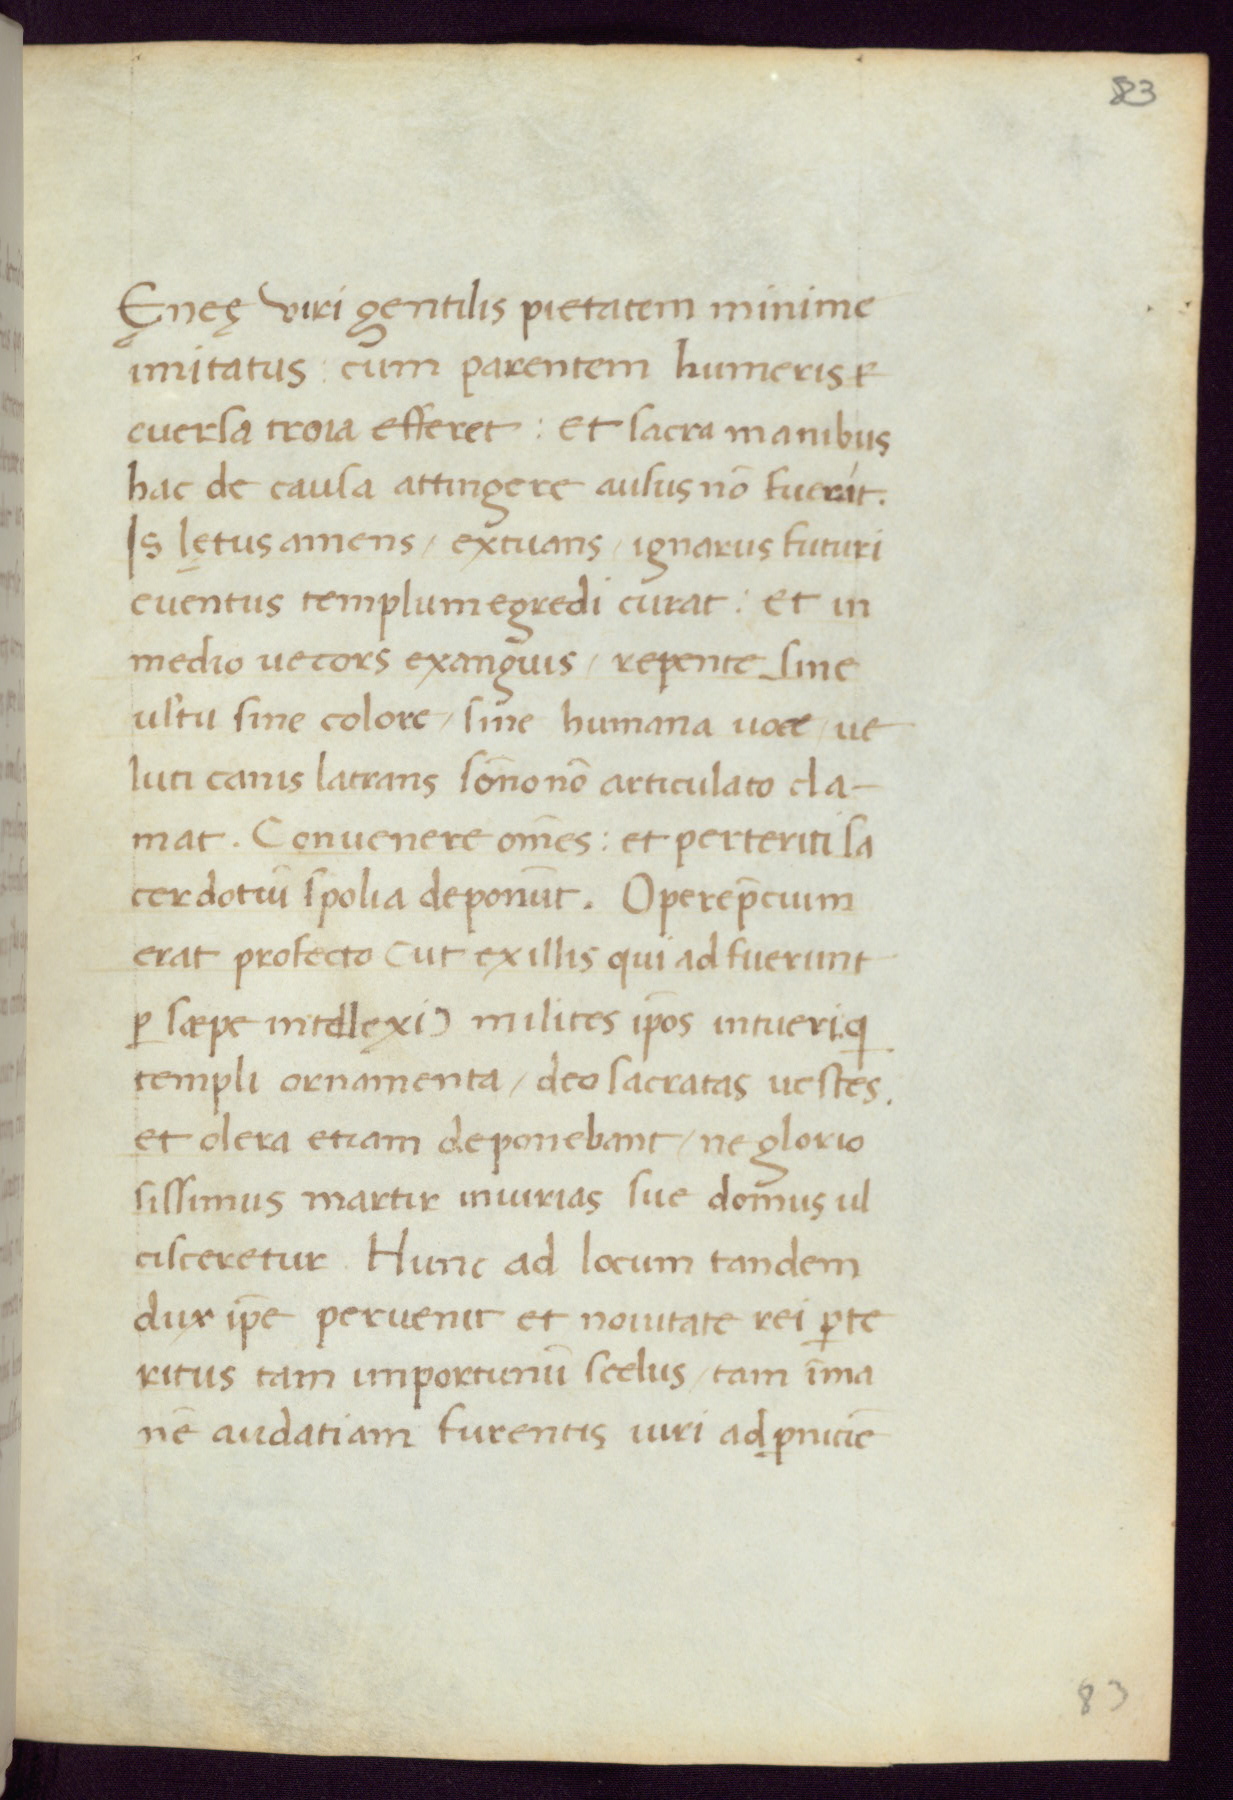 83
Ęneę viri gentilis pietatem minime
imitatus : cum parentem humeris &
euersa troia efferet : Et sacra manibus
hac de causa attingere ausus nō fuerit.
Is lętus amens / extuans / ignarus futuri
euentus templum egredi curat : Et in
medio uecors exanguis / repente sine
ultu sine colore / sine humana uoce / ue
luti canis latrans sōno nō articulato cla-
mat . Conuenere om̄es : et perteriti sa
cerdotiū spolia deponūt . Operep̄cium
erat profecto (ut ex illis qui ad fuerunt
ꝑ sæpe intellexi) milites ip̄os intueri. q
templi ornamenta / deo sacratas uestes.
et olera etiam deponebant / ne glorio
sissimus martir iniurias sue domus ul
cisceretur . Hunc ad locum tandem
dux ip̄e peruenit et nouitate rei ꝑte
ritus tam importunū scelus / tam īma
nē audatiam furentis uiri ad ꝑnitiē
83